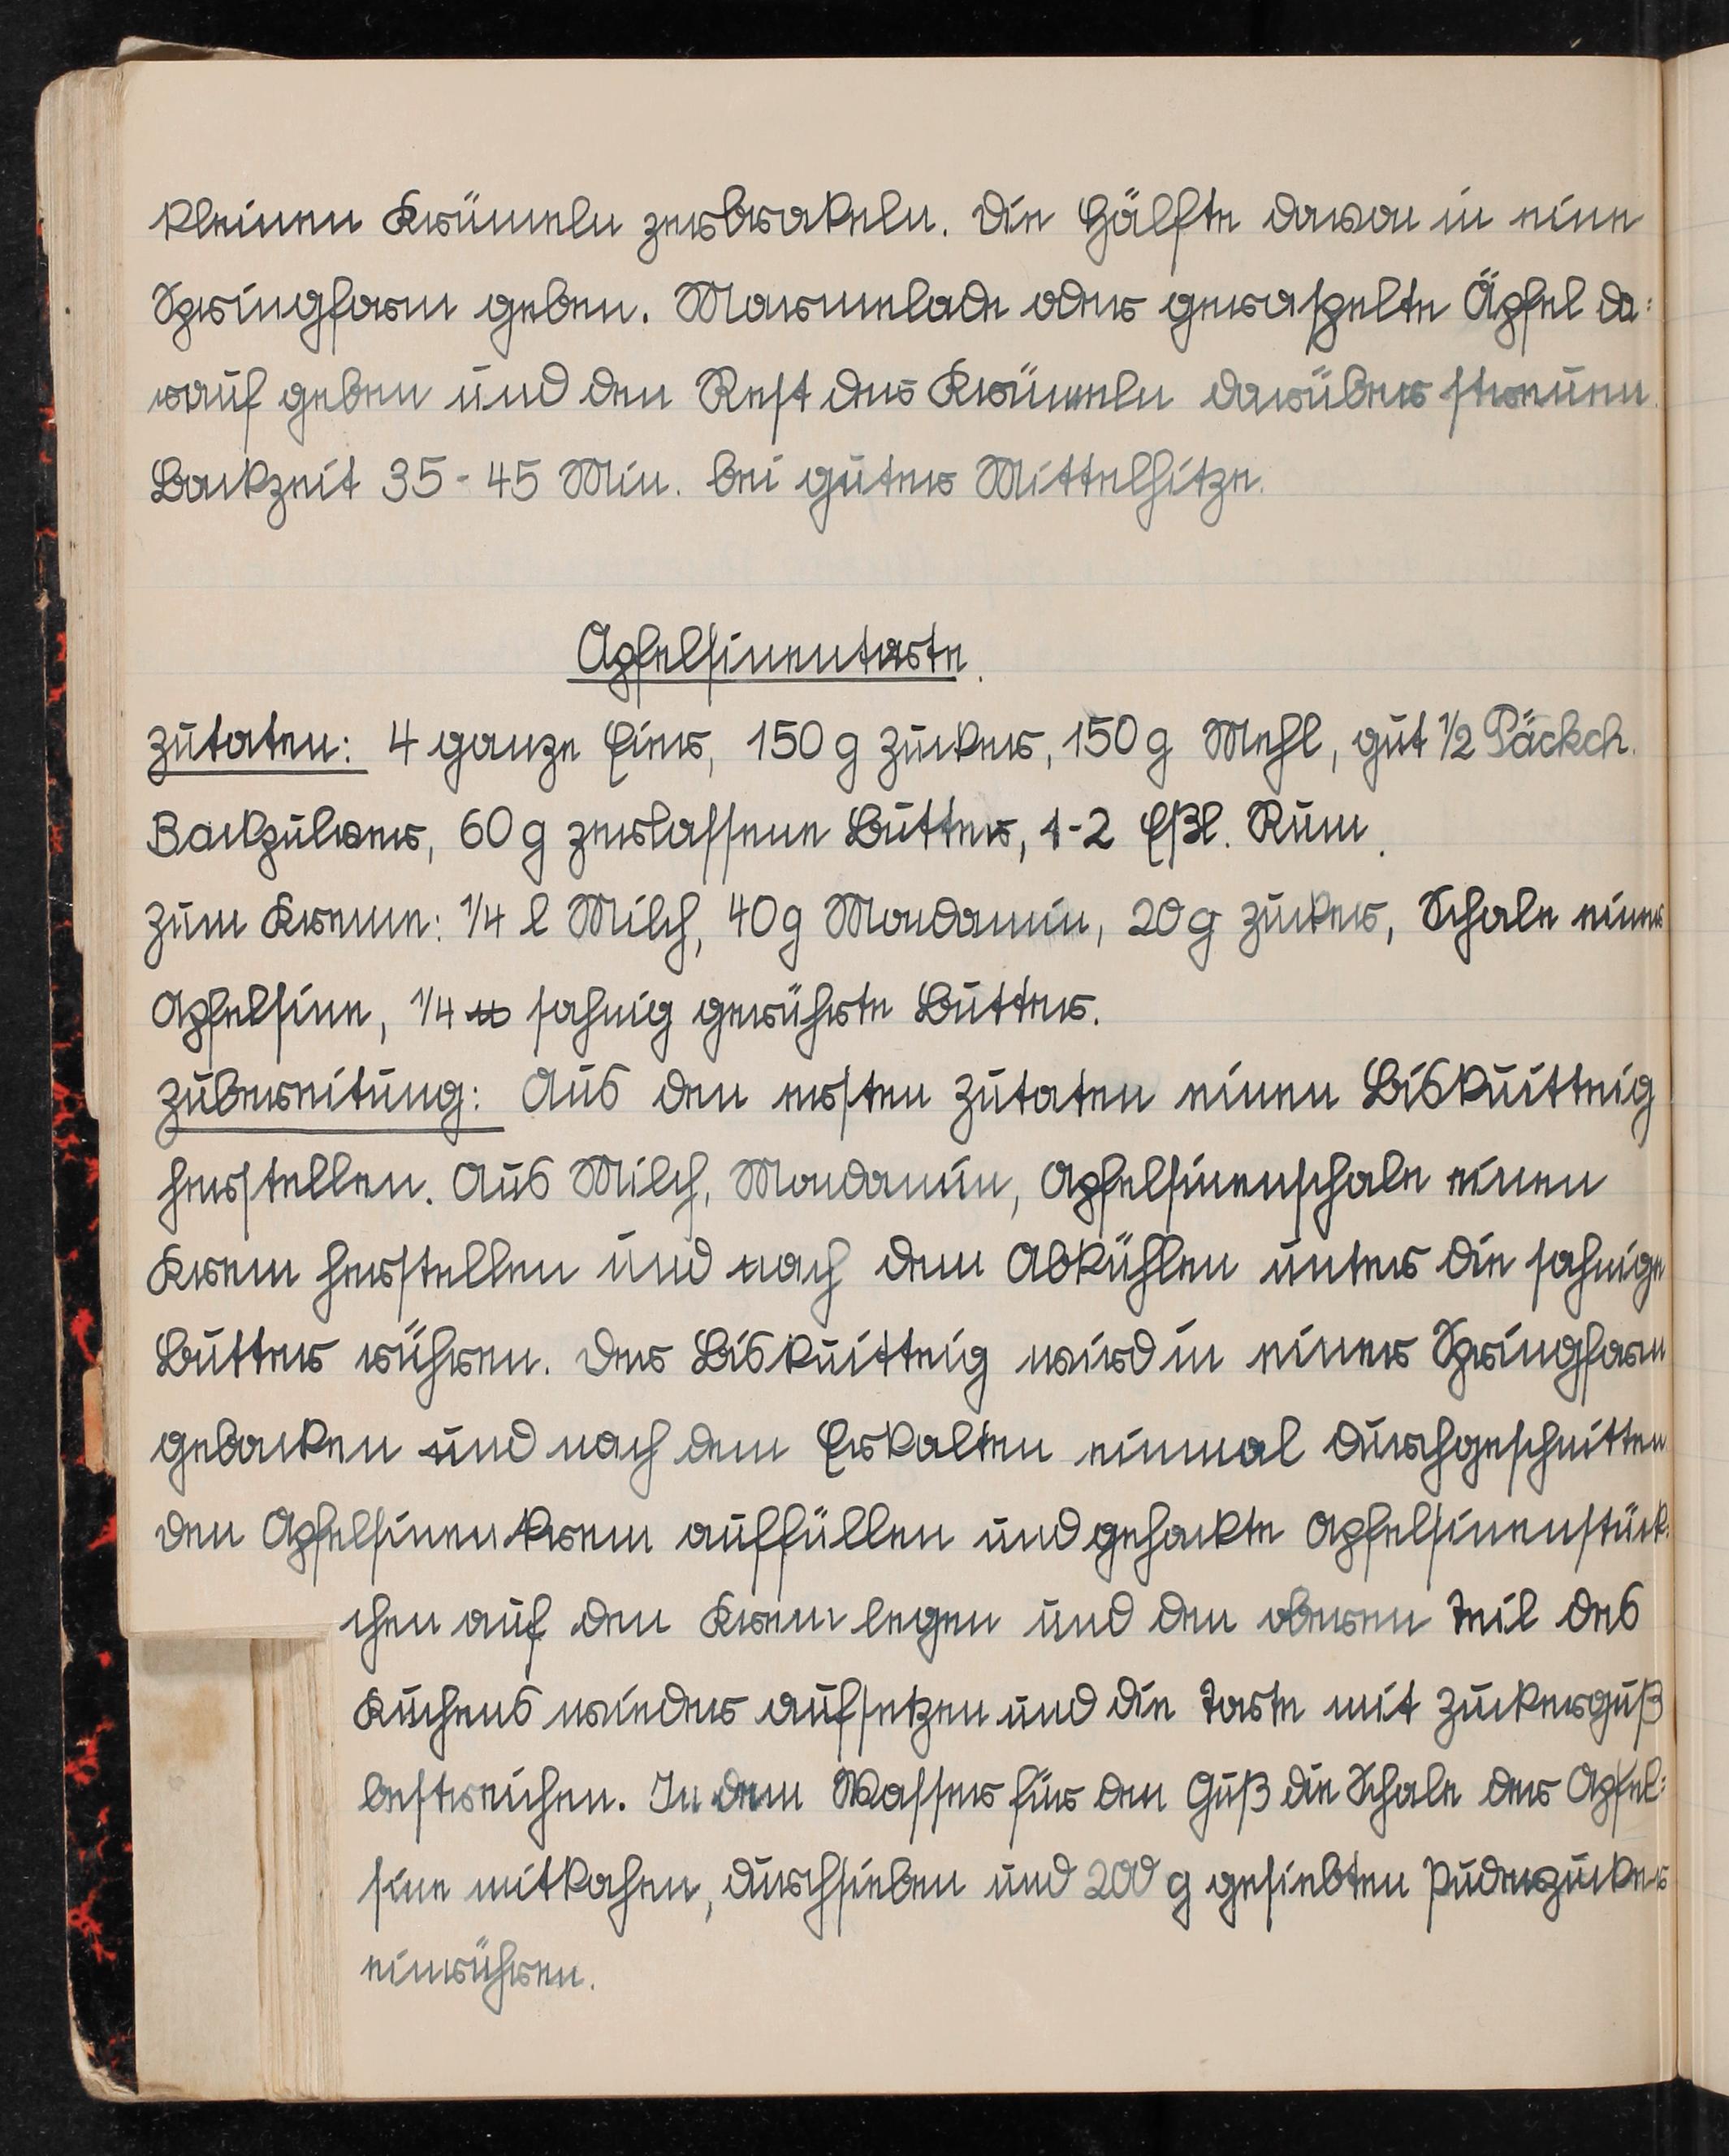 kleinen Krümeln zerbrökeln. Die Hälfte davon in eine
Springform geben. Marmelade oder geraspelte Äpfel da:
rauf geben und den Rest der Krümeln darüber streuen.
Backzeit 35-45 Min. bei guter Mittelhitze.
Apfelsinentorte.
Zutaten: 4 ganze Eier, 150 g Zucker, 150 g Mehl, gut 1/2 Päckch.
Backpulver, 60 g zerlassene Butter, 1-2 Eßl. Rum.
Zum Kreme: 1/4 l Milch, 40 g Mondamin, 20 g Zucker, Schale einer
Apfelsine, 1/4 ℔ sahnig gerührte Butter.
Zubereitung: Aus den ersten Zutaten einen Biskuitteig
herstellen. Aus Milch, Mondamin, Apfelsinenschale einen
Krem herstellen und nach dem Abkühlen unter die sahnige
Butter rühren. Der Biskuitteig wird in einer Springform
gebacken und nach dem Erkalten einmal durchgeschnitten
den Apfelsinenkrem auffüllen und gehackte Apfelsinenstück:
chen auf den Krem legen und den oberen Teil des
Kuchens wieder aufsetzen und die Torte mit Zuckerguß
bestreichen. In dem Wasser für den Guß die Schale der Apfel:
sine mitkochen, durchsieben und 200 g gesiebten Puderzucker
einrühren.